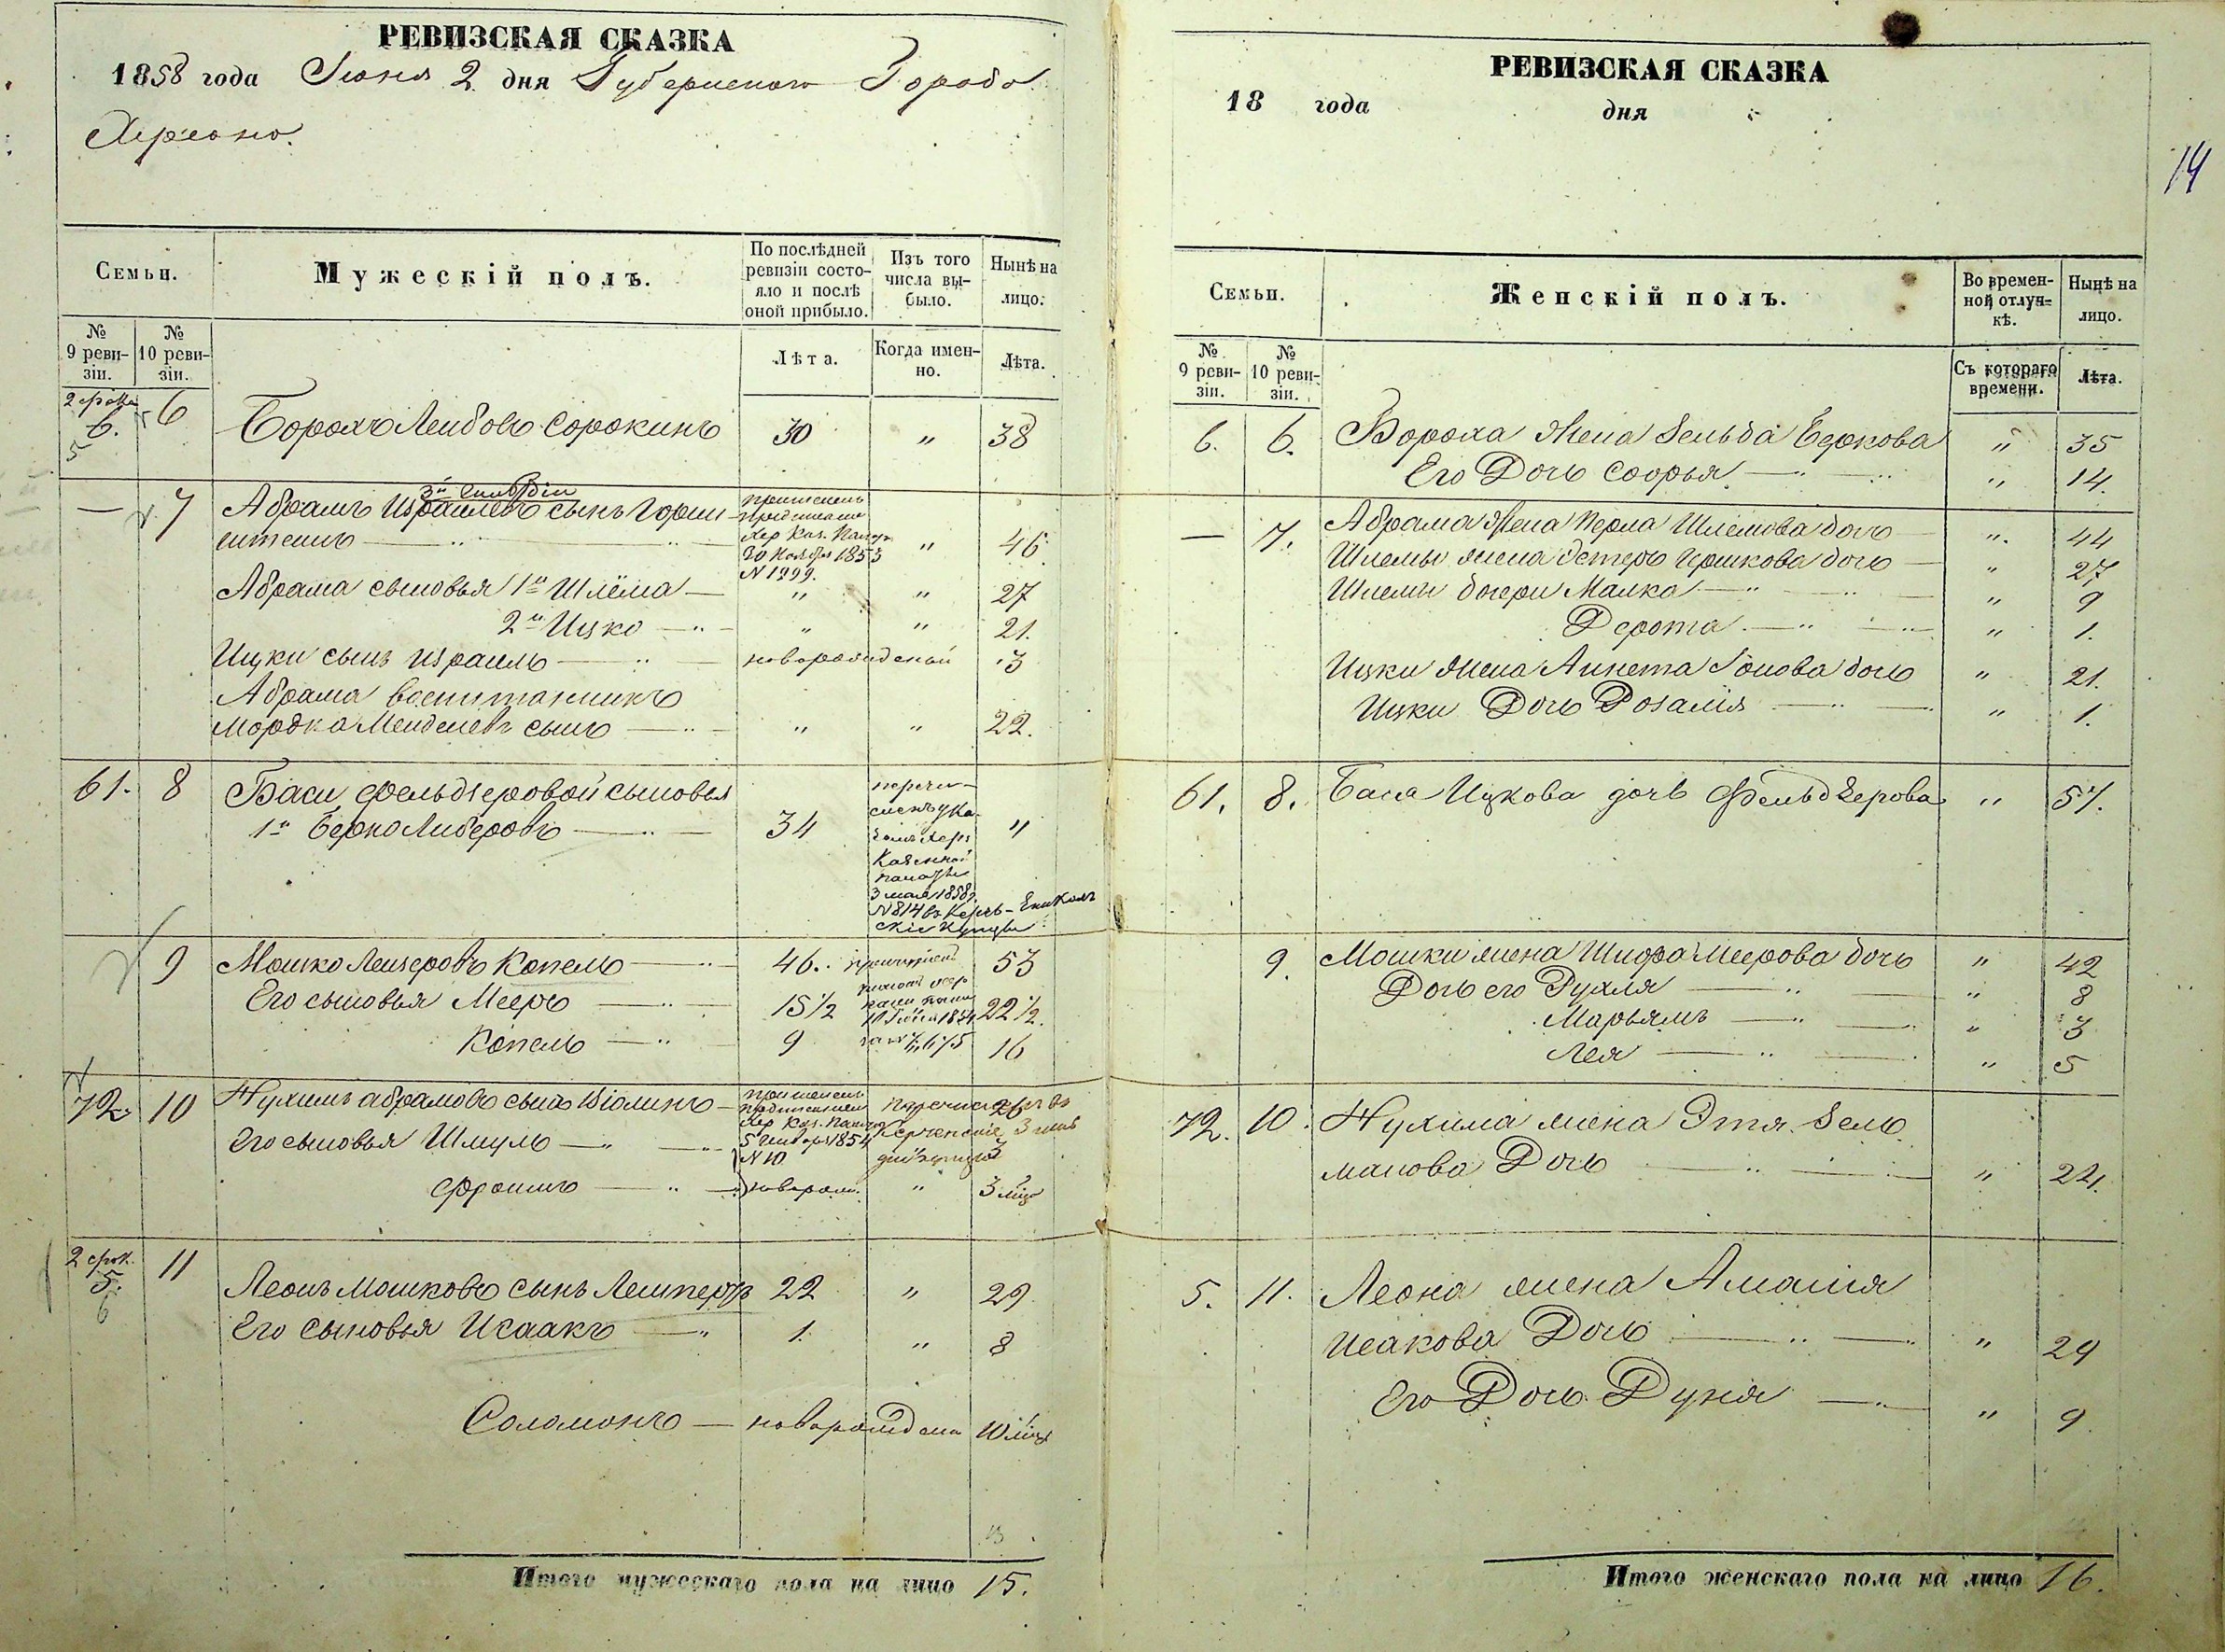 РЕВИЗСКАЯ СКАЗКА
1858 года Іюня 2 дня Губернскаго Города
Херсона.
Семьи.
Мужескій полъ.
По послѣдней ревизіи состояло и послѣ оной прибыло.
Изъ того числа выбыло.
Нынѣ на лицо.
№ 9 ревизіи.
№ 10 ревизіи.
Лѣта.
Когда именно.
Лѣта.
6. 5
6 Борохъ Лейбовъ Сорокинъ 30 " 38
3й Гильдіи
— 7 Абрамъ Израилевъ сынъ Горин-
штейнъ — " — " 46
Хер. Каз. Пал.
30 Ноября 1853
N 1299.
Абрама сыновья 1й Шлёма — " " 27
2й Ицко — " — " " 21.
Ицки сынъ Израиль — " — новорожденный 3
Абрама воспитанникъ
Мордко Менделевъ сынъ — " — " " 22.
61. 8 Баси Фельдзеровой сыновья
1й Берко Либеровъ — " — 34 "
перечисленъ
Казенной
палаты
3 мая 1858 г.
N 814 въ Керчь-Еникольскіе купцы
9 Мошко Лейзеровъ Копель — " 46. 53
Его сыновья Мееръ — " — 15½ 22½.
Копель — " — 9 16
72. 10 Нухимъ Абрамовъ сынъ Віолинъ — 26
Его сыновья Шмуль — " — 3
Хер. Каз. Палаты
5 Января 1854
N 10
Фроимъ — " — новорож. " 3 мѣс
5. 6
11 Леонъ Мошковъ сынъ Лемперт 22 " 29
Его сыновья Исаакъ — " 1. " 8
Соломонъ — новорожден 10 мѣс
Итого мужескаго пола на лицо 15.
14
РЕВИЗСКАЯ СКАЗКА
18 года дня
Семьи.
Женскій полъ.
Во временной отлучкѣ.
Нынѣ на лицо.
№ 9 ревизіи.
№ 10 ревизіи.
Съ котораго времени.
Лѣта.
6. 6. Бороха Жена Зельда Беркова " 35
Его Дочь Соорья — " — " 14.
— 7. Абрама Жена Перла Шлемова дочь — " 44
Шлемы жена Эстеръ Гершкова дочь — " 27
Шлемы дочери Малка — " — " 9
Дерота — " — " 1.
Ицки Жена Аннета Іонова дочь " 21.
Ицки Дочь Розалія — " — " 1.
61. 8. Бася Ицкова дочь Фельдзерова " 57.
9. Мошки жена Шифра Меерова дочь " 42
Дочь его Рухля — " — " 8
Марьямъ — " — " 3
Лея — " — " 5
72. 10. Нухима жена Этя Зель-
манова Дочь — " — " 24.
5. 11. Леона жена Амалия
Исакова Дочь — " — " 29
Его Дочь Дуня — " — " 9
Итого женскаго пола на лицо 16.